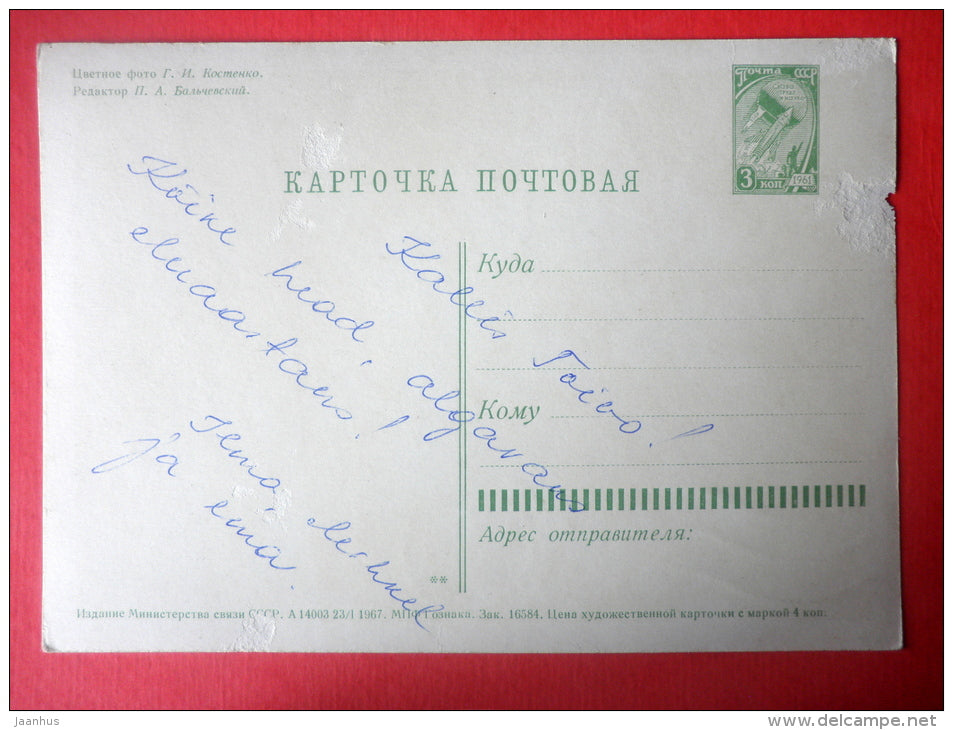 Цветное фото Г. И. Костенко.
Редактор П. А. Бальчевский.
Почта СССР
3 коп
1961
КАРТОЧКА ПОЧТОВАЯ
Куда
Кому
Адрес отправителя:
Kallis Toivo!
Kõike head, algavaus
eluaastaus!
ja ema.
**
Издание Министерства связи СССР. А 14003 23/I 1967. МПФ Гознака. Зак. 16584. Цена художественной карточки с маркой 4 коп.
Jaanhus
www.delcampe.net